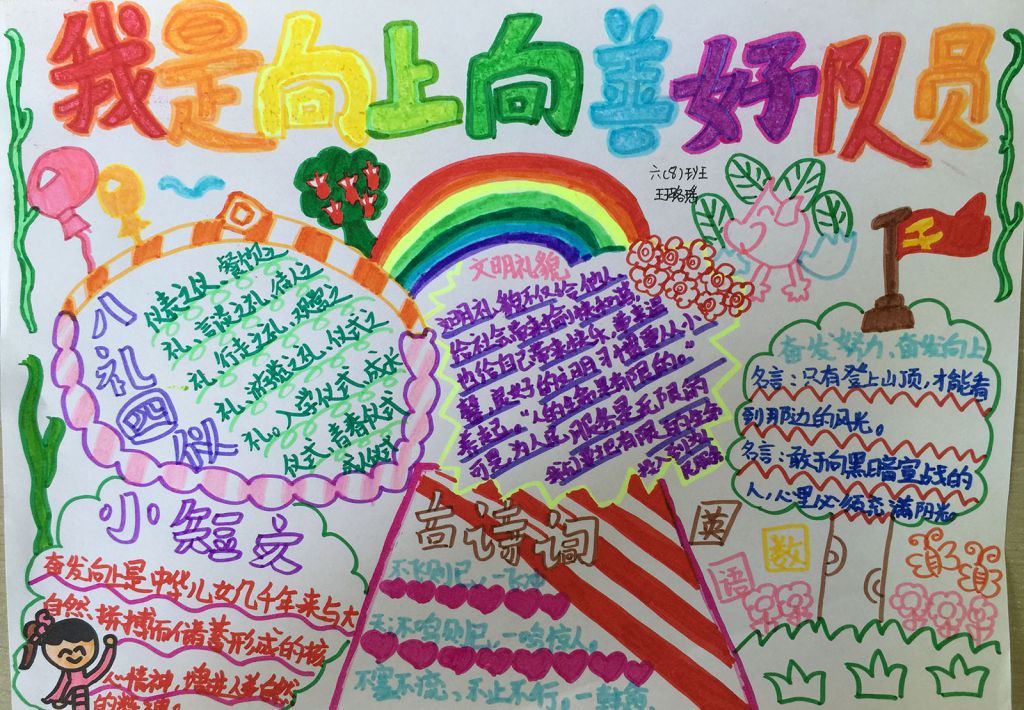 我是向上向善好队员
六(8)班
王珞瑶
八礼四仪
仪表之仪、餐饮之
礼、言谈之礼、待人之
礼、行走之礼、观赏之
礼、游览之礼、仪式之
礼。入学仪式、成长
仪式、青春仪式
成人仪式
文明礼貌
文明礼貌不仅给他人、
给社会带来愉快和谐，
也给自己带来快乐
最好的文明习惯要从小
养起。"人的生命是有限的。
可是，为人民服务是无限的
我们要把有限的生命
投入到为人
民服务
奋发努力、奋发向上
名言：只有登上山顶，才能看
到那边的风光。
名言：敢于向黑暗宣战的
人，心里必须充满阳光。
小短文
奋发向上是中华儿女几千年来与大
自然拼搏而储蓄形成的核
心精神，
古诗词
不飞则已，一飞冲
不鸣则已，一鸣惊人。
不塞不流、不止不行。—韩愈
英
数
语